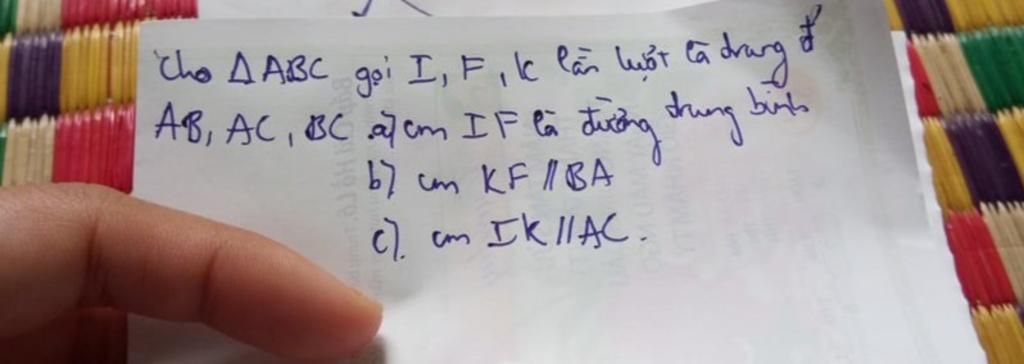 Cho ΔABC gọi I, F, K lần lượt là trung đ
AB, AC, BC a) cm IF là đường trung bình
b) cm KF // BA
c). cm IK // AC.